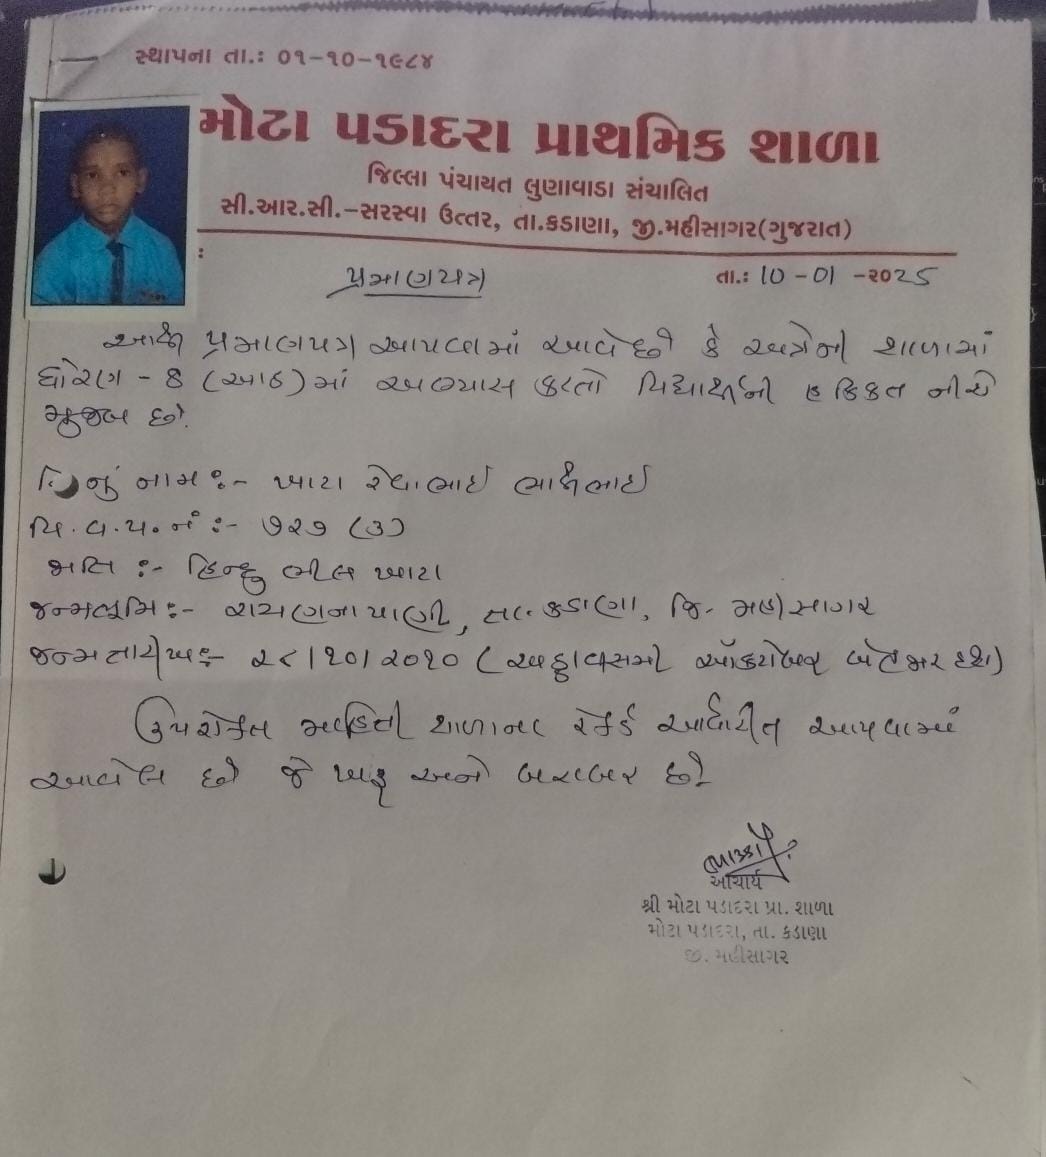 સ્થાપના તા.: ૦૧-૧૦-૧૯૮૪
મોટા પડાદરા પ્રાથમિક શાળા
જિલ્લા પંચાયત લુણાવાડા સંચાલિત
સી.આર.સી.-સરસ્વા ઉત્તર, તા.કડાણા, જી.મહીસાગર(ગુજરાત)
:
પ્રમાણપત્ર તા.: 10-01-૨૦25
આથી પ્રમાણપત્ર આપવામાં આવે છે કે અત્રેની શાળામાં
ધોરણ - 8 (આઠ) માં અભ્યાસ કરતો વિદ્યાર્થીની હકિકત નીચે
મુજબ છે.
નું નામ :- ખાટા રેવાભાઈ ભાથીભાઈ
વિ. વ. પ. નં :- ૭૨૭ (૩)
જાતિ :- હિન્દુ ભીલ ખાટા
જન્મભૂમિ :- રાયણના પાણી, તા. કડાણા, જિ. મહીસાગર
જન્મ તારીખ :- ૨૮/૧૦/૨૦૧૦ (અઠ્ઠાવીસમી ઑક્ટોબર બે હજાર દશ)
ઉપરોક્ત માહિતી શાળાના રેકર્ડ આધારીત આપવામાં
આવેલ છે જે ખરૂ અને બરાબર છે.
આચાર્ય
શ્રી મોટા પડાદરા પ્રા. શાળા
મોટા પડાદરા, તા. કડાણા
જી. મહીસાગર